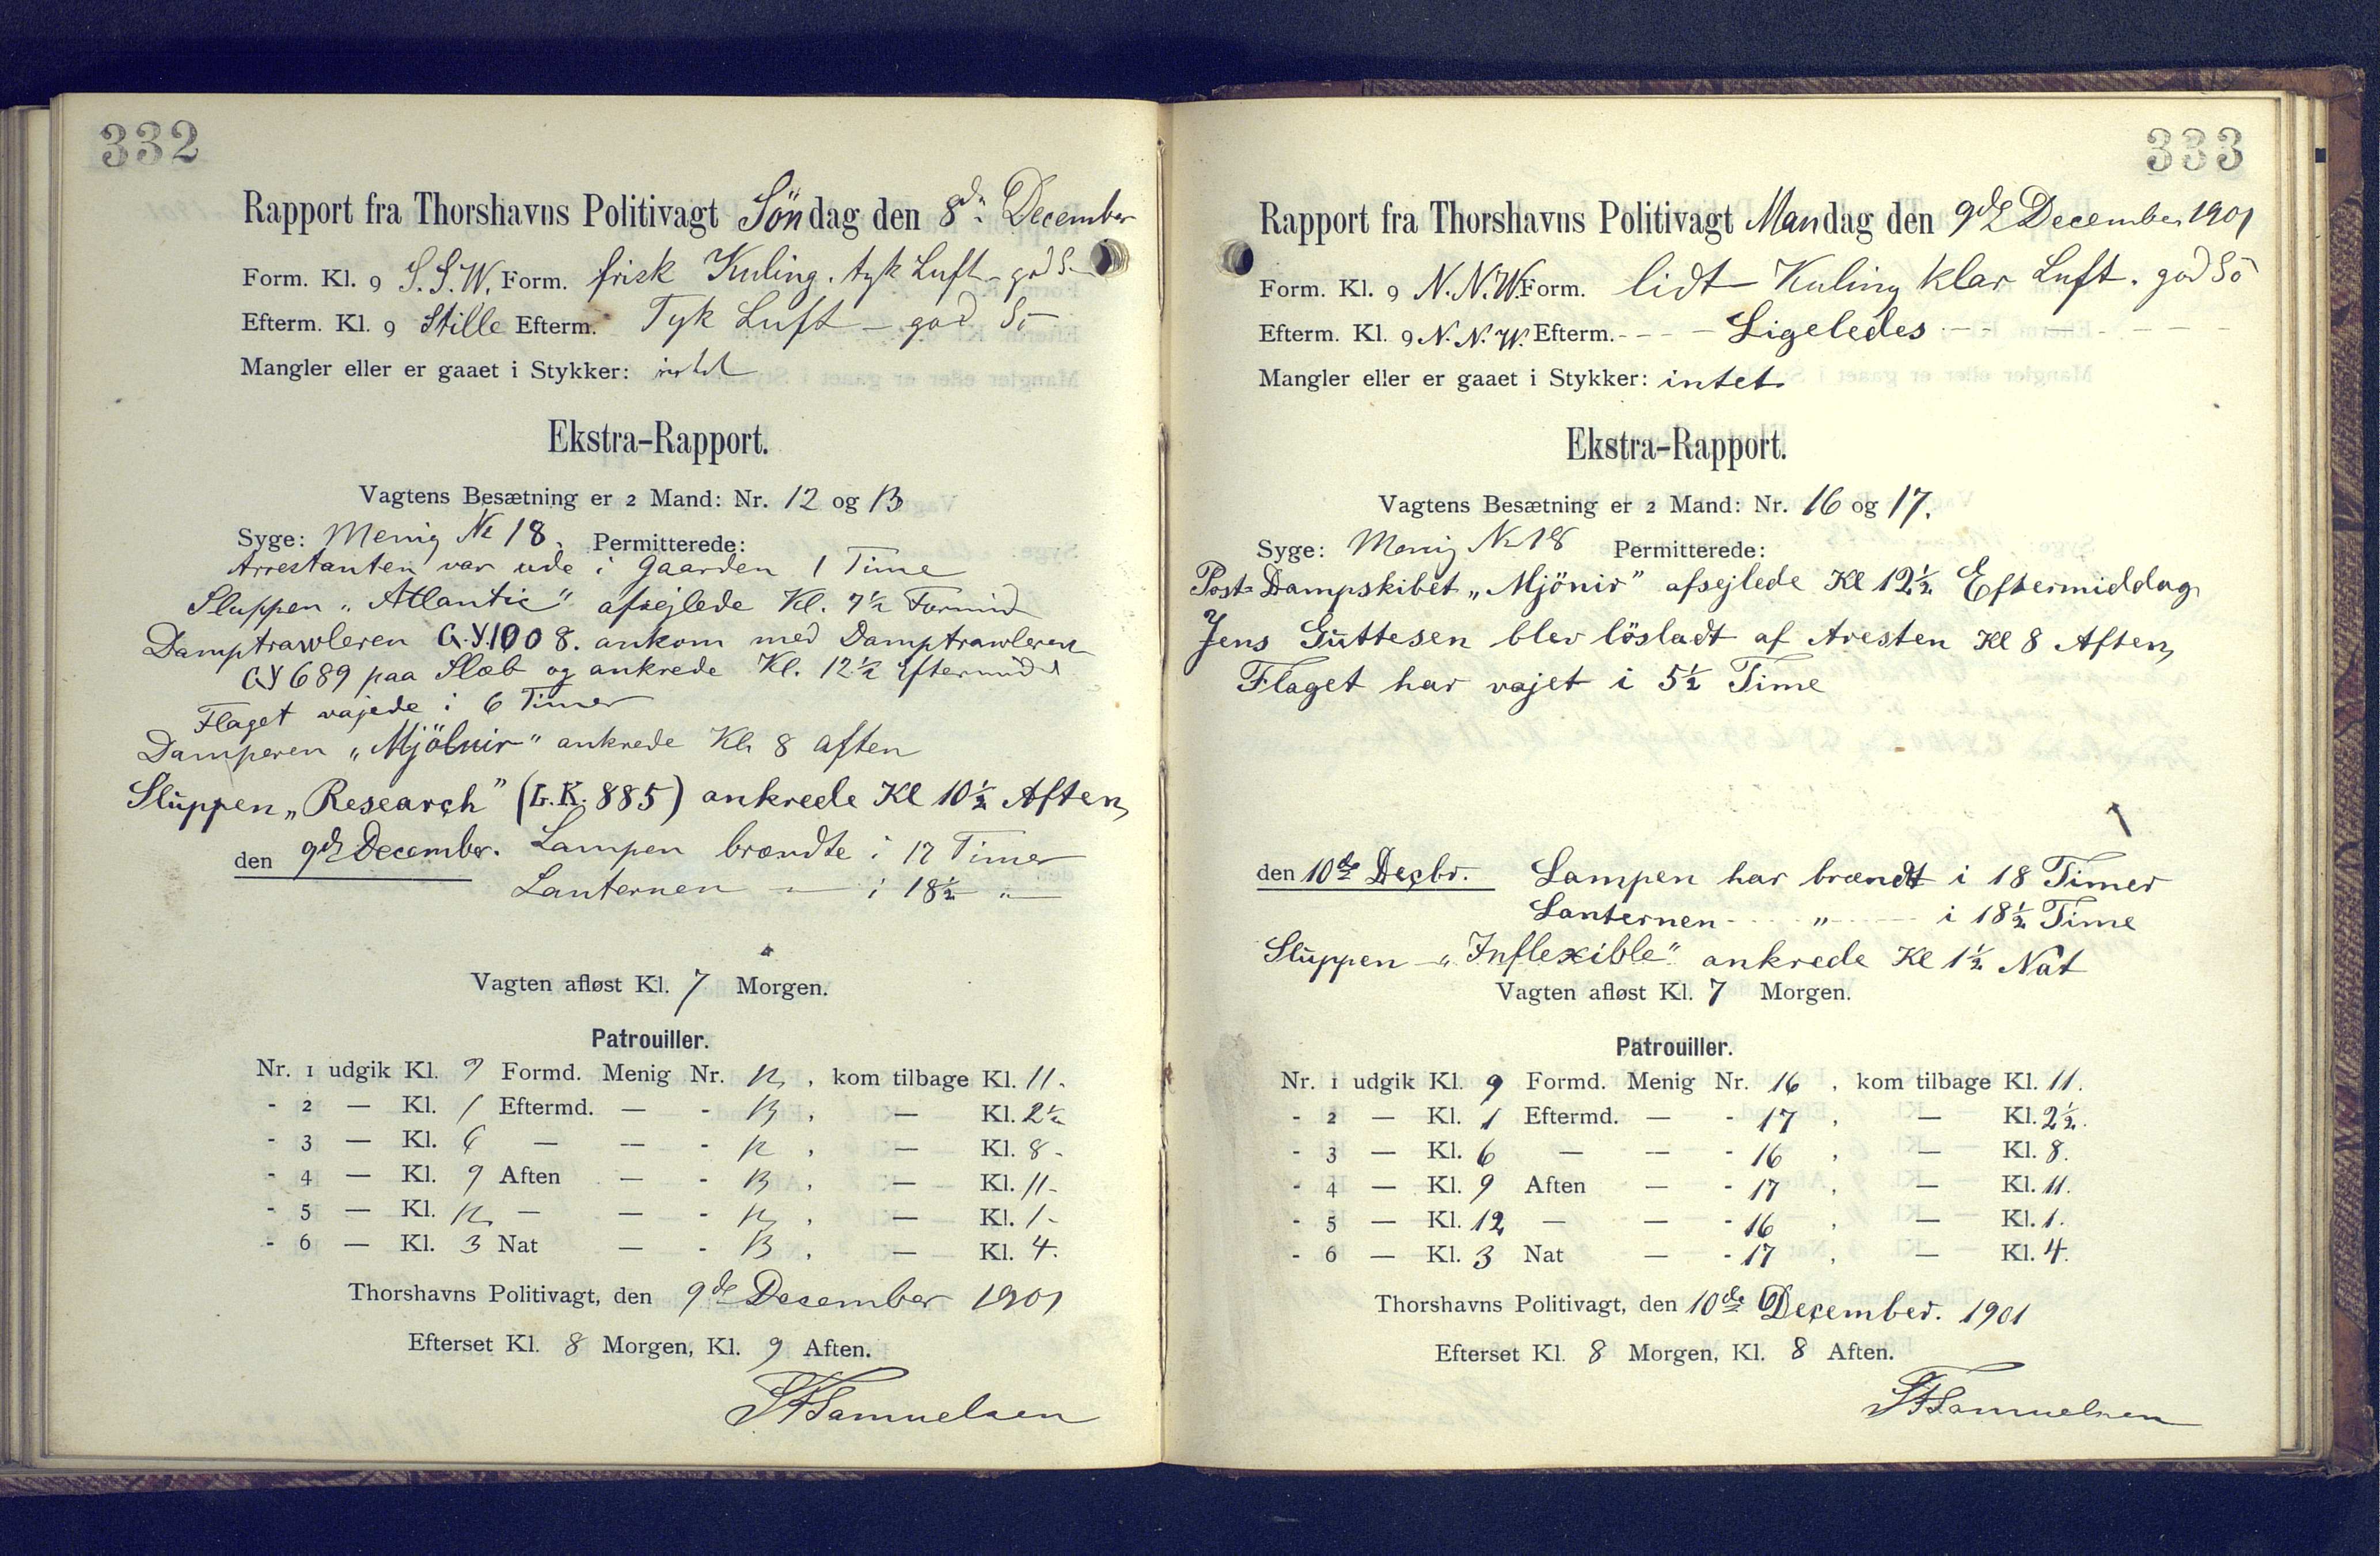 332
Rapport fra Thorshavns Politivagt Söndag den 8de December
Form. Kl. 9 S.S.W. Form. frisk Kuling. tyk Luft - god S
Efterm. Kl. 9 Stille Efterm. Tyk Luft - god Sö
Mangler eller er gaaet i Stykker: intet
Ekstra-Rapport.
Vagtens Besætning er 2 Mand: Nr. 12 og 13
Syge: Menig No 18. Permitterede:
Arrestanten var ude i Gaarden 1 Time
Sluppen „Atlantic" afsejlede Kl. 7½ Formid
Damptrawleren G.Y.1008. ankom med Damptrawleren
GY 689 paa Slæb og ankrede Kl. 12½ Eftermidd
Flaget vajede i 6 Timer
Damperen „Mjölnir" ankrede Kl. 8 aften
Sluppen „Research" (L.K. 885) ankrede Kl 10½ Aften,
den 9de December. Lampen brændte i 17 Timer
Lanternen — " — i 18½ — " —
Vagten afløst Kl. 7 Morgen.
Patrouiller.
Nr. 1 udgik Kl. 9 Formd. Menig Nr. 12, kom tilbage Kl. 11.
- 2 — Kl. 1 Eftermd. — - 13, — Kl. 2½
- 3 — Kl. 6 — — - 12, — Kl. 8 -
- 4 — Kl. 9 Aften — - 13, — Kl. 11-
- 5 — Kl. 12 — — - 12, — Kl. 1-
- 6 — Kl. 3 Nat — - 13, — Kl. 4.
Thorshavns Politivagt, den 9de December 1901
Efterset Kl. 8 Morgen, Kl. 9 Aften.
Samuelsen
333
Rapport fra Thorshavns Politivagt Mandag den 9de December 1901
Form. Kl. 9 N.N.W. Form. lidt Kuling klar Luft. god Sö
Efterm. Kl. 9 N.N.W. Efterm. - - - Ligeledes - - - - - -
Mangler eller er gaaet i Stykker: intet
Ekstra-Rapport.
Vagtens Besætning er 2 Mand: Nr. 16 og 17.
Syge: Menig No 18 Permitterede:
Post-Dampskibet „Mjönir" afsejlede Kl 12½ Eftermiddag
Jens Guttesen blev lösladt af Aresten Kl 8 Aften,
Flaget har vajet i 5½ Time
den 10de Decbr. Lampen har brændt i 18 Timer
Lanternen - - - „ - - - i 18½ Time
Sluppen - „Inflexible" ankrede Kl 1½ Nat
Vagten afløst Kl. 7 Morgen.
Patrouiller.
Nr. 1 udgik Kl. 9 Formd. Menig Nr. 16, kom tilbage Kl. 11.
- 2 — Kl. 1 Eftermd. — - 17, — Kl. 2½.
- 3 — Kl. 6 — — - 16, — Kl. 8.
- 4 — Kl. 9 Aften — - 17, — Kl. 11.
- 5 — Kl. 12 — — - 16, — Kl. 1.
- 6 — Kl. 3 Nat — - 17, — Kl. 4.
Thorshavns Politivagt, den 10de December. 1901
Efterset Kl. 8 Morgen, Kl. 8 Aften.
Samuelsen